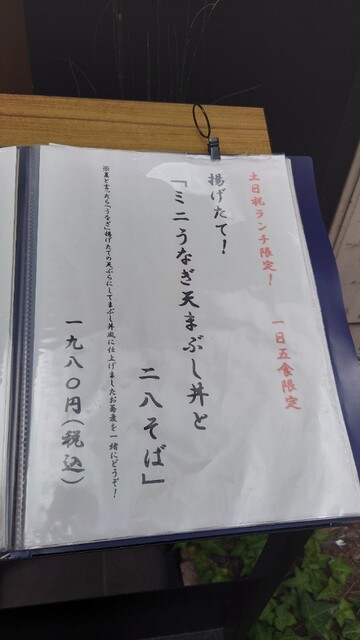 土日祝ランチ限定！
一日五食限定
揚げたて！
「ミニうなぎ天まぶし丼と
二八そば」
※夏と言ったら「うなぎ」揚げたての天ぷらにしてまぶし丼風に仕上げましたお蕎麦を一緒にどうぞ！
一九八〇円（税込）